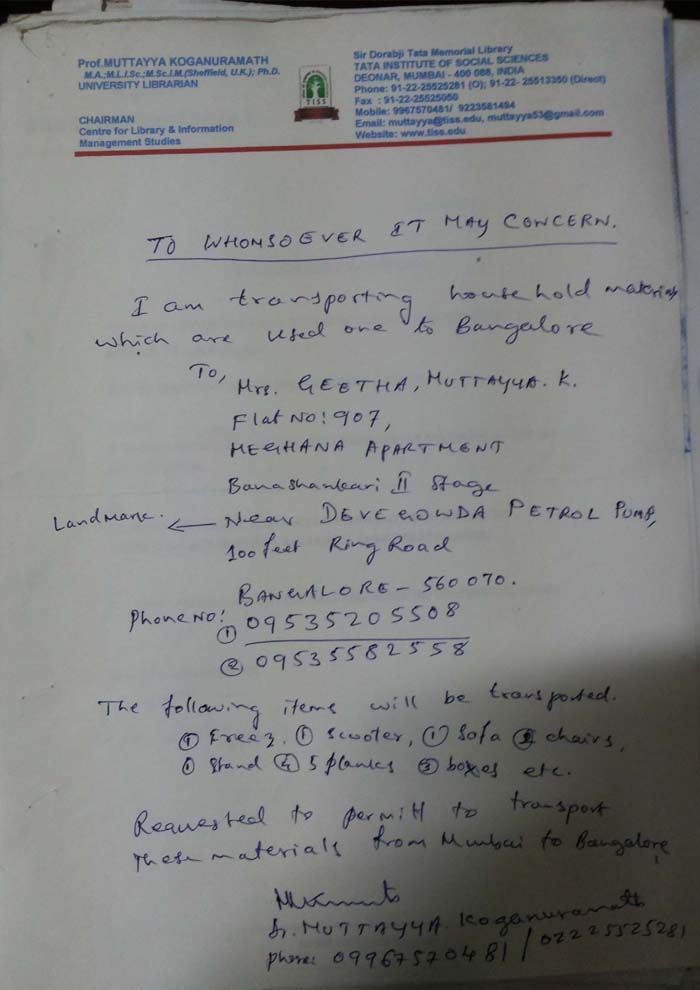 Prof.MUTTAYYA KOGANURAMATH
M.A.;M.L.I.Sc.;M.Sc.I.M.(Sheffield, U.K.); Ph.D.
UNIVERSITY LIBRARIAN
CHAIRMAN
Centre for Library & Information
Management Studies
TISS
Sir Dorabji Tata Memorial Library
TATA INSTITUTE OF SOCIAL SCIENCES
DEONAR, MUMBAI - 400 088, INDIA
Phone: 91-22-25525281 (O); 91-22- 25513350 (Direct)
Fax : 91-22-25525050
Mobile: 9967570481/ 9223581494
Email: muttayya@tiss.edu, muttayya53@gmail.com
Website: www.tiss.edu
TO WHOMSOEVER IT MAY CONCERN.
I am transporting household materials
which are used one to Bangalore
To,
Mrs. GEETHA, MUTTAYYA. K.
Flat NO: 907,
MEGHANA APARTMENT
Banashankari II Stage
Landmark. ← Near DEVEGOWDA PETROL PUMP,
100 feet Ring Road
BANGALORE - 560 070.
Phone NO: ① 09535205508
② 09535582558
The following items will be transported.
① Freez, ① Scooter, ① Sofa ② chairs,
① Stand ④ 5 planks ③ boxes etc.
Requested to permitt to transport
These materials from Mumbai to Bangalore
Dr. MUTTAYYA Koganuramath
phone: 09967570481 / 02225525281